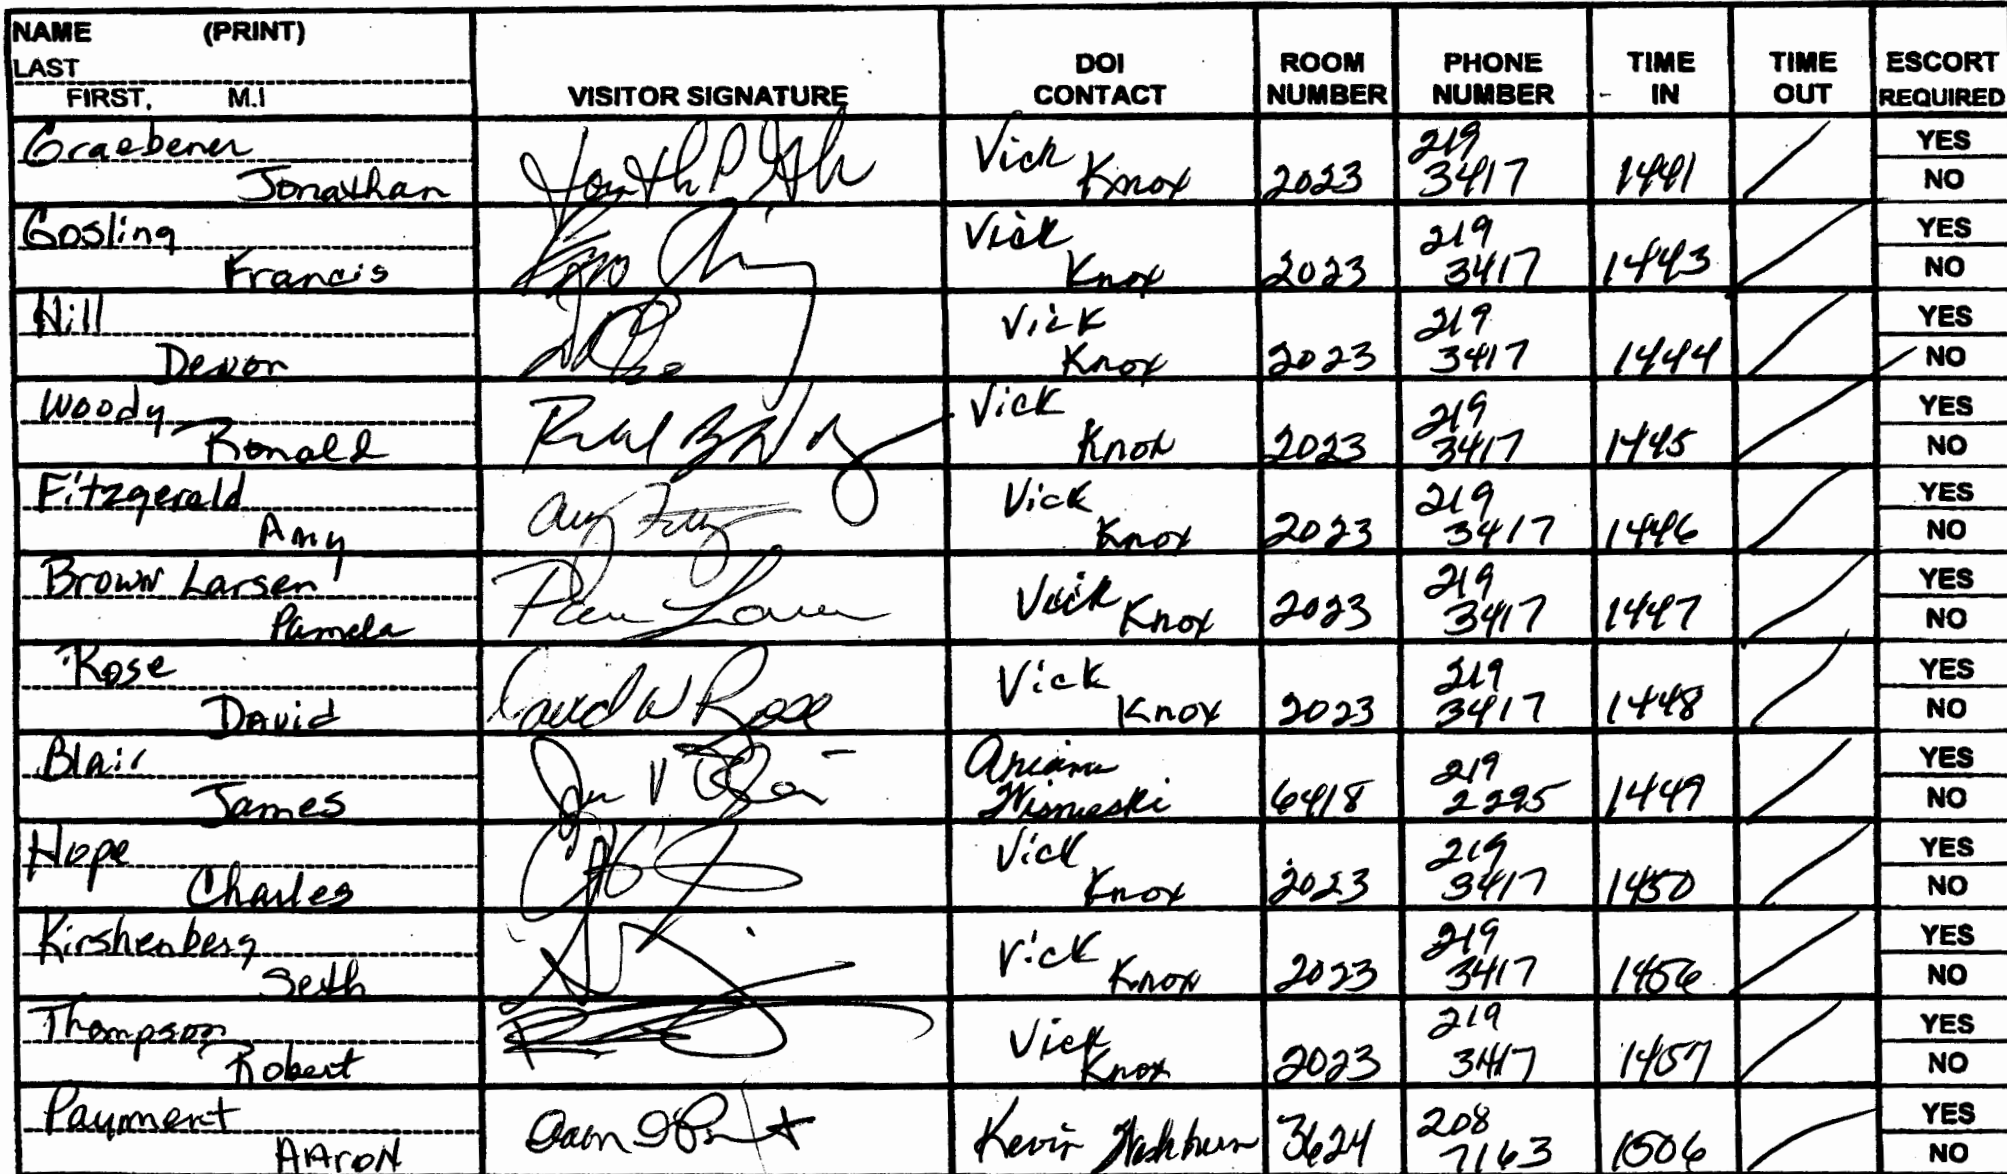 NAME (PRINT)
LAST
FIRST, M.I
VISITOR SIGNATURE
DOI CONTACT
ROOM NUMBER
PHONE NUMBER
TIME IN
TIME OUT
ESCORT REQUIRED
Graebener Jonathan Vick Knox 2023 219 3417 1441 YES NO
Gosling Francis Vick Knox 2023 219 3417 1443 YES NO
Hill Devon Vick Knox 2023 219 3417 1444 YES NO
Woody Ronald Vick Knox 2023 219 3417 1445 YES NO
Fitzgerald Amy Amy Fitz Vick Knox 2023 219 3417 1446 YES NO
Brown Larsen Pamela Pam Larsen Vick Knox 2023 219 3417 1447 YES NO
Rose David David W Rose Vick Knox 2023 219 3417 1448 YES NO
Blair James 6418 219 2295 1449 YES NO
Hope Charles Vick Knox 2023 219 3417 1450 YES NO
Kirshenberg Seth Vick Knox 2023 219 3417 1456 YES NO
Thompson Robert Vick Knox 2023 219 3417 1457 YES NO
Payment AAroN Kevin Washburn 3624 208 7163 1506 YES NO